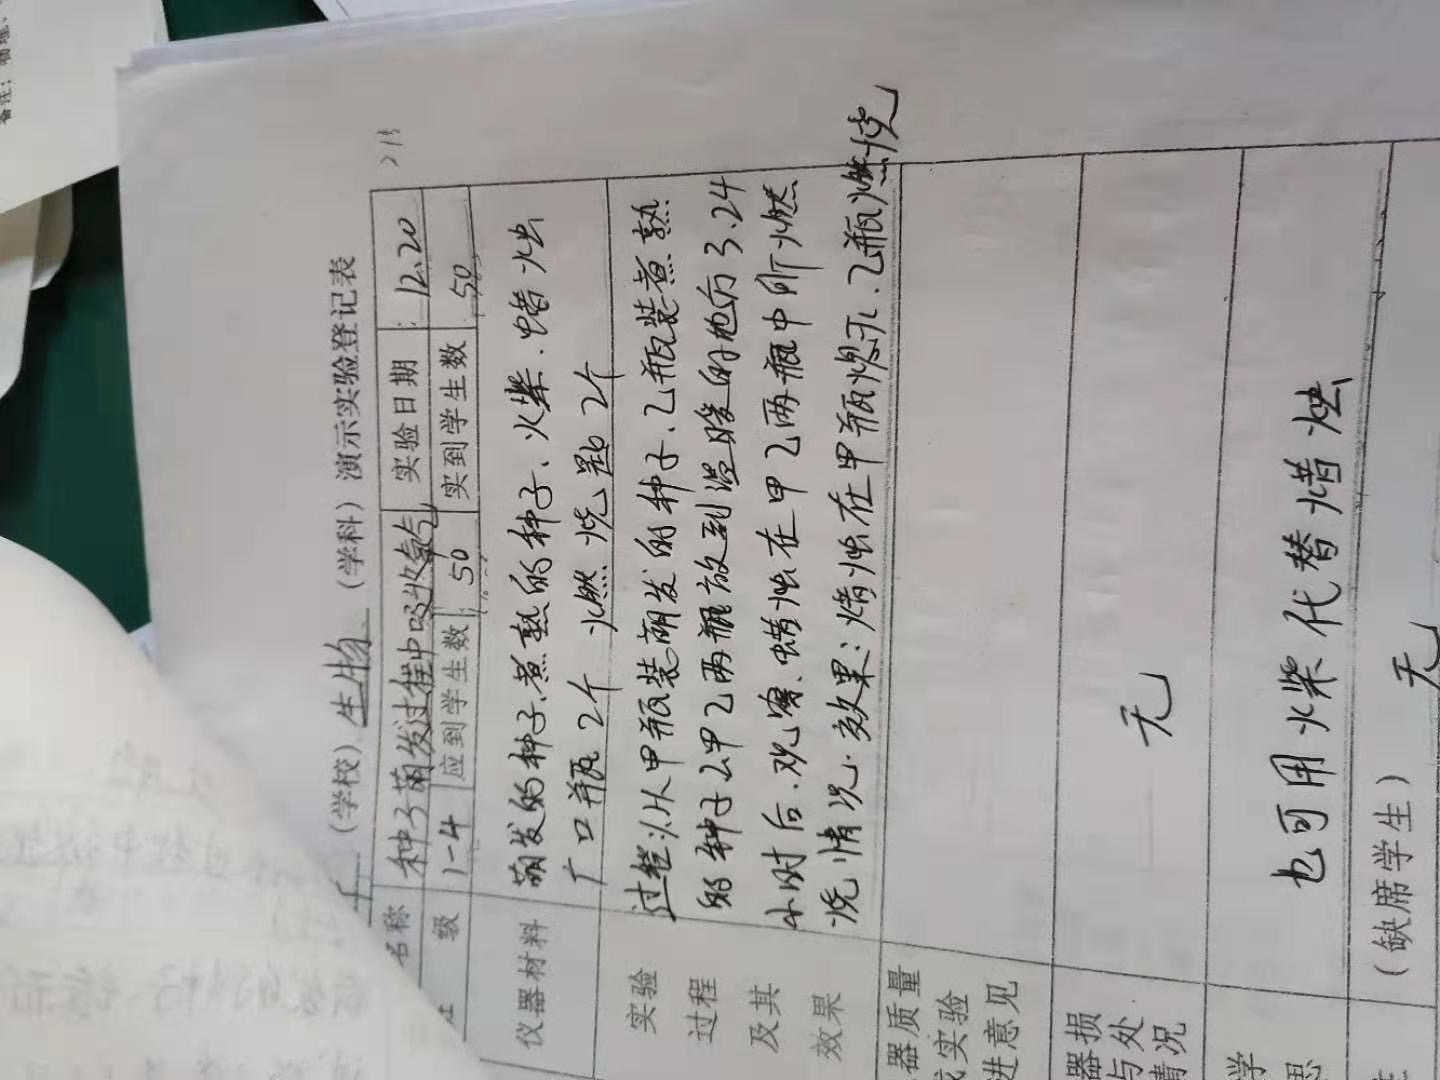 (学校) 生物 (学科) 演示实验登记表
名称 种子萌发过程中吸收氧气 实验日期 12.20
级 1-4 应到学生数 50 实到学生数 50
仪器材料 萌发的种子、煮熟的种子、火柴、蜡烛
广口瓶2个 燃烧匙2个
实验 过程: 从甲瓶装萌发的种子、乙瓶装煮熟
过程 的种子 甲乙两瓶放到温暖的地方 3.24
及其 小时后、观察、蜡烛在甲乙两瓶中所燃
效果 烧情况. 效果:蜡烛在甲瓶熄灭、乙瓶燃烧
器质量
实验
进意见
器损
与处
情况
无
学
思
也可用火柴代替蜡烛
(缺席学生) 无